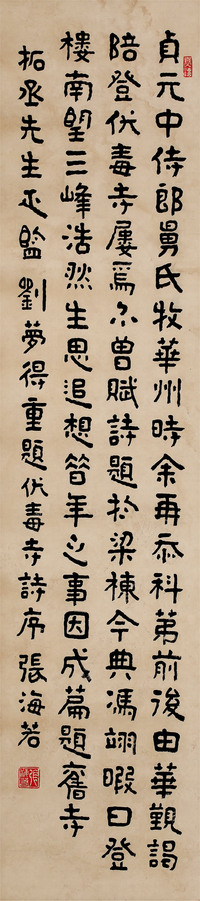 貞元中侍郎舅氏牧華州時余再忝科第前後由華覲謁
陪登伏毒寺屢焉亦曾賦詩題於梁棟今典馮翊暇日登
樓南望三峰浩然生思追想昔年之事因成篇題舊寺
拓丞先生正監 劉夢得重題伏毒寺詩序 張海若